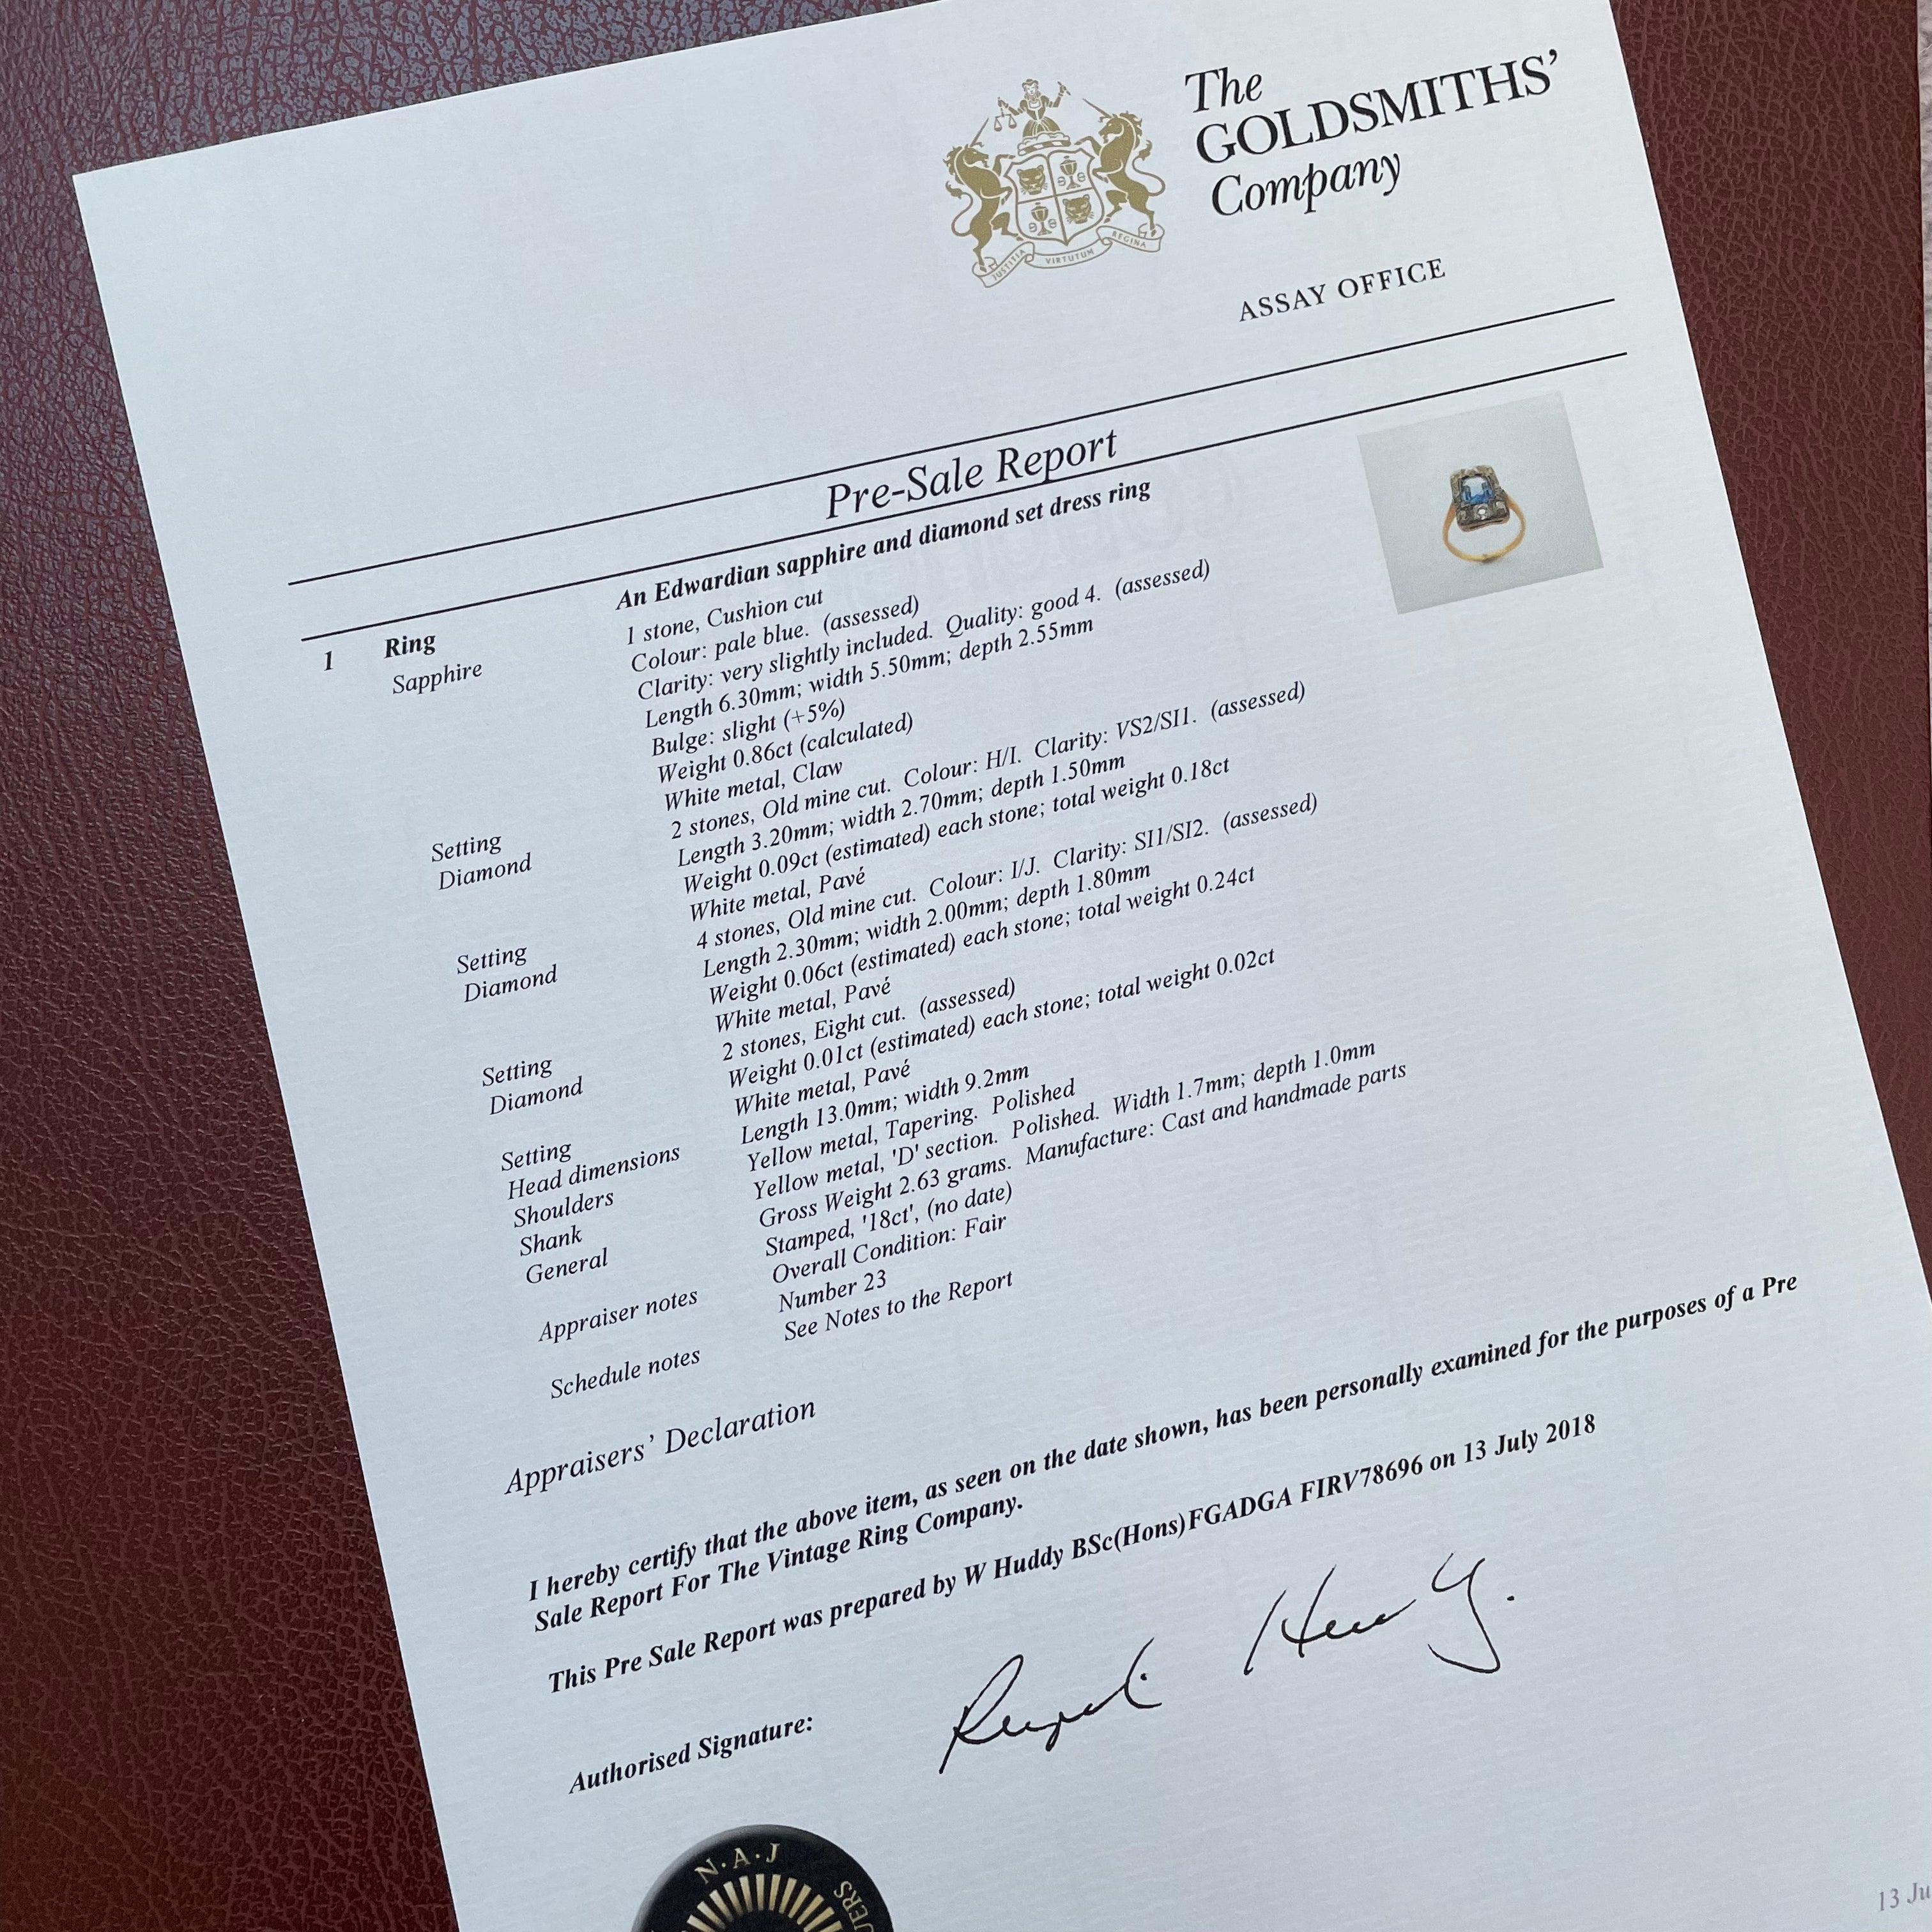 The
GOLDSMITHS'
Company
JUSTITIA VIRTUTUM REGINA
ASSAY OFFICE
Pre-Sale Report
1 Ring An Edwardian sapphire and diamond set dress ring
Sapphire 1 stone, Cushion cut
Colour: pale blue. (assessed)
Clarity: very slightly included. Quality: good 4. (assessed)
Length 6.30mm; width 5.50mm; depth 2.55mm
Bulge: slight (+5%)
Weight 0.86ct (calculated)
Setting White metal, Claw
Diamond 2 stones, Old mine cut. Colour: H/I. Clarity: VS2/SI1. (assessed)
Length 3.20mm; width 2.70mm; depth 1.50mm
Weight 0.09ct (estimated) each stone; total weight 0.18ct
Setting White metal, Pavé
Diamond 4 stones, Old mine cut. Colour: I/J. Clarity: SI1/SI2. (assessed)
Length 2.30mm; width 2.00mm; depth 1.80mm
Weight 0.06ct (estimated) each stone; total weight 0.24ct
Setting White metal, Pavé
Diamond 2 stones, Eight cut. (assessed)
Weight 0.01ct (estimated) each stone; total weight 0.02ct
Setting White metal, Pavé
Head dimensions Length 13.0mm; width 9.2mm
Shoulders Yellow metal, Tapering. Polished
Shank Yellow metal, 'D' section. Polished. Width 1.7mm; depth 1.0mm
General Gross Weight 2.63 grams. Manufacture: Cast and handmade parts
Stamped, '18ct', (no date)
Appraiser notes Overall Condition: Fair
Number 23
Schedule notes See Notes to the Report
Appraisers' Declaration
I hereby certify that the above item, as seen on the date shown, has been personally examined for the purposes of a Pre
Sale Report For The Vintage Ring Company.
This Pre Sale Report was prepared by W Huddy BSc(Hons)FGADGA FIRV78696 on 13 July 2018
Authorised Signature:
N.A.J
13 Ju